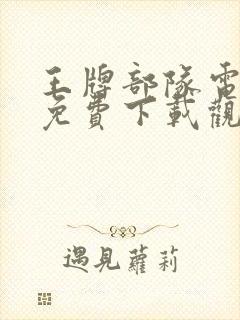 王牌部隊電
免費下載觀
遇見蘿莉